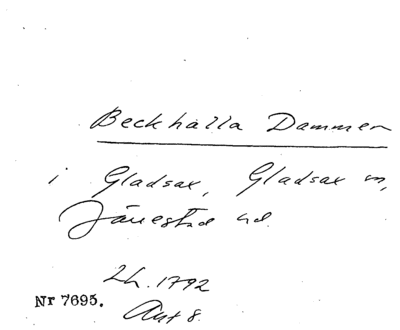 Beckhalla Dammen
i Gladsax, Gladsax sn,
Järrestad hd.
Lh. 1792
Akt 8.
Nr 7695.